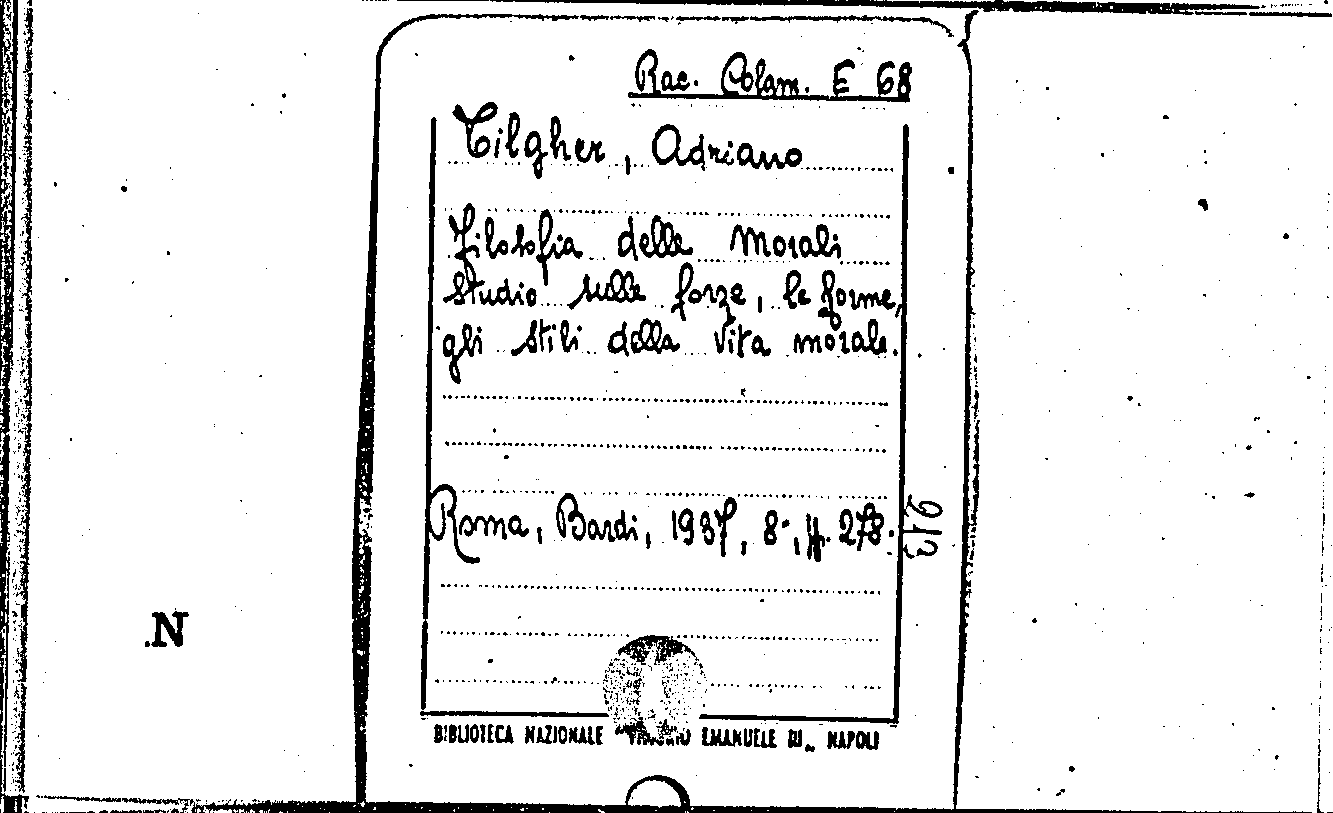 Rac. Colam. E 68
Tilgher, Adriano
Filosofia delle Morali
Studio sulle forze, le forme,
gli stili della vita morale.
Roma, Bardi, 1937, 8°, pp. 278.
N.
BIBLIOTECA NAZIONALE "VITTORIO EMANUELE III" NAPOLI